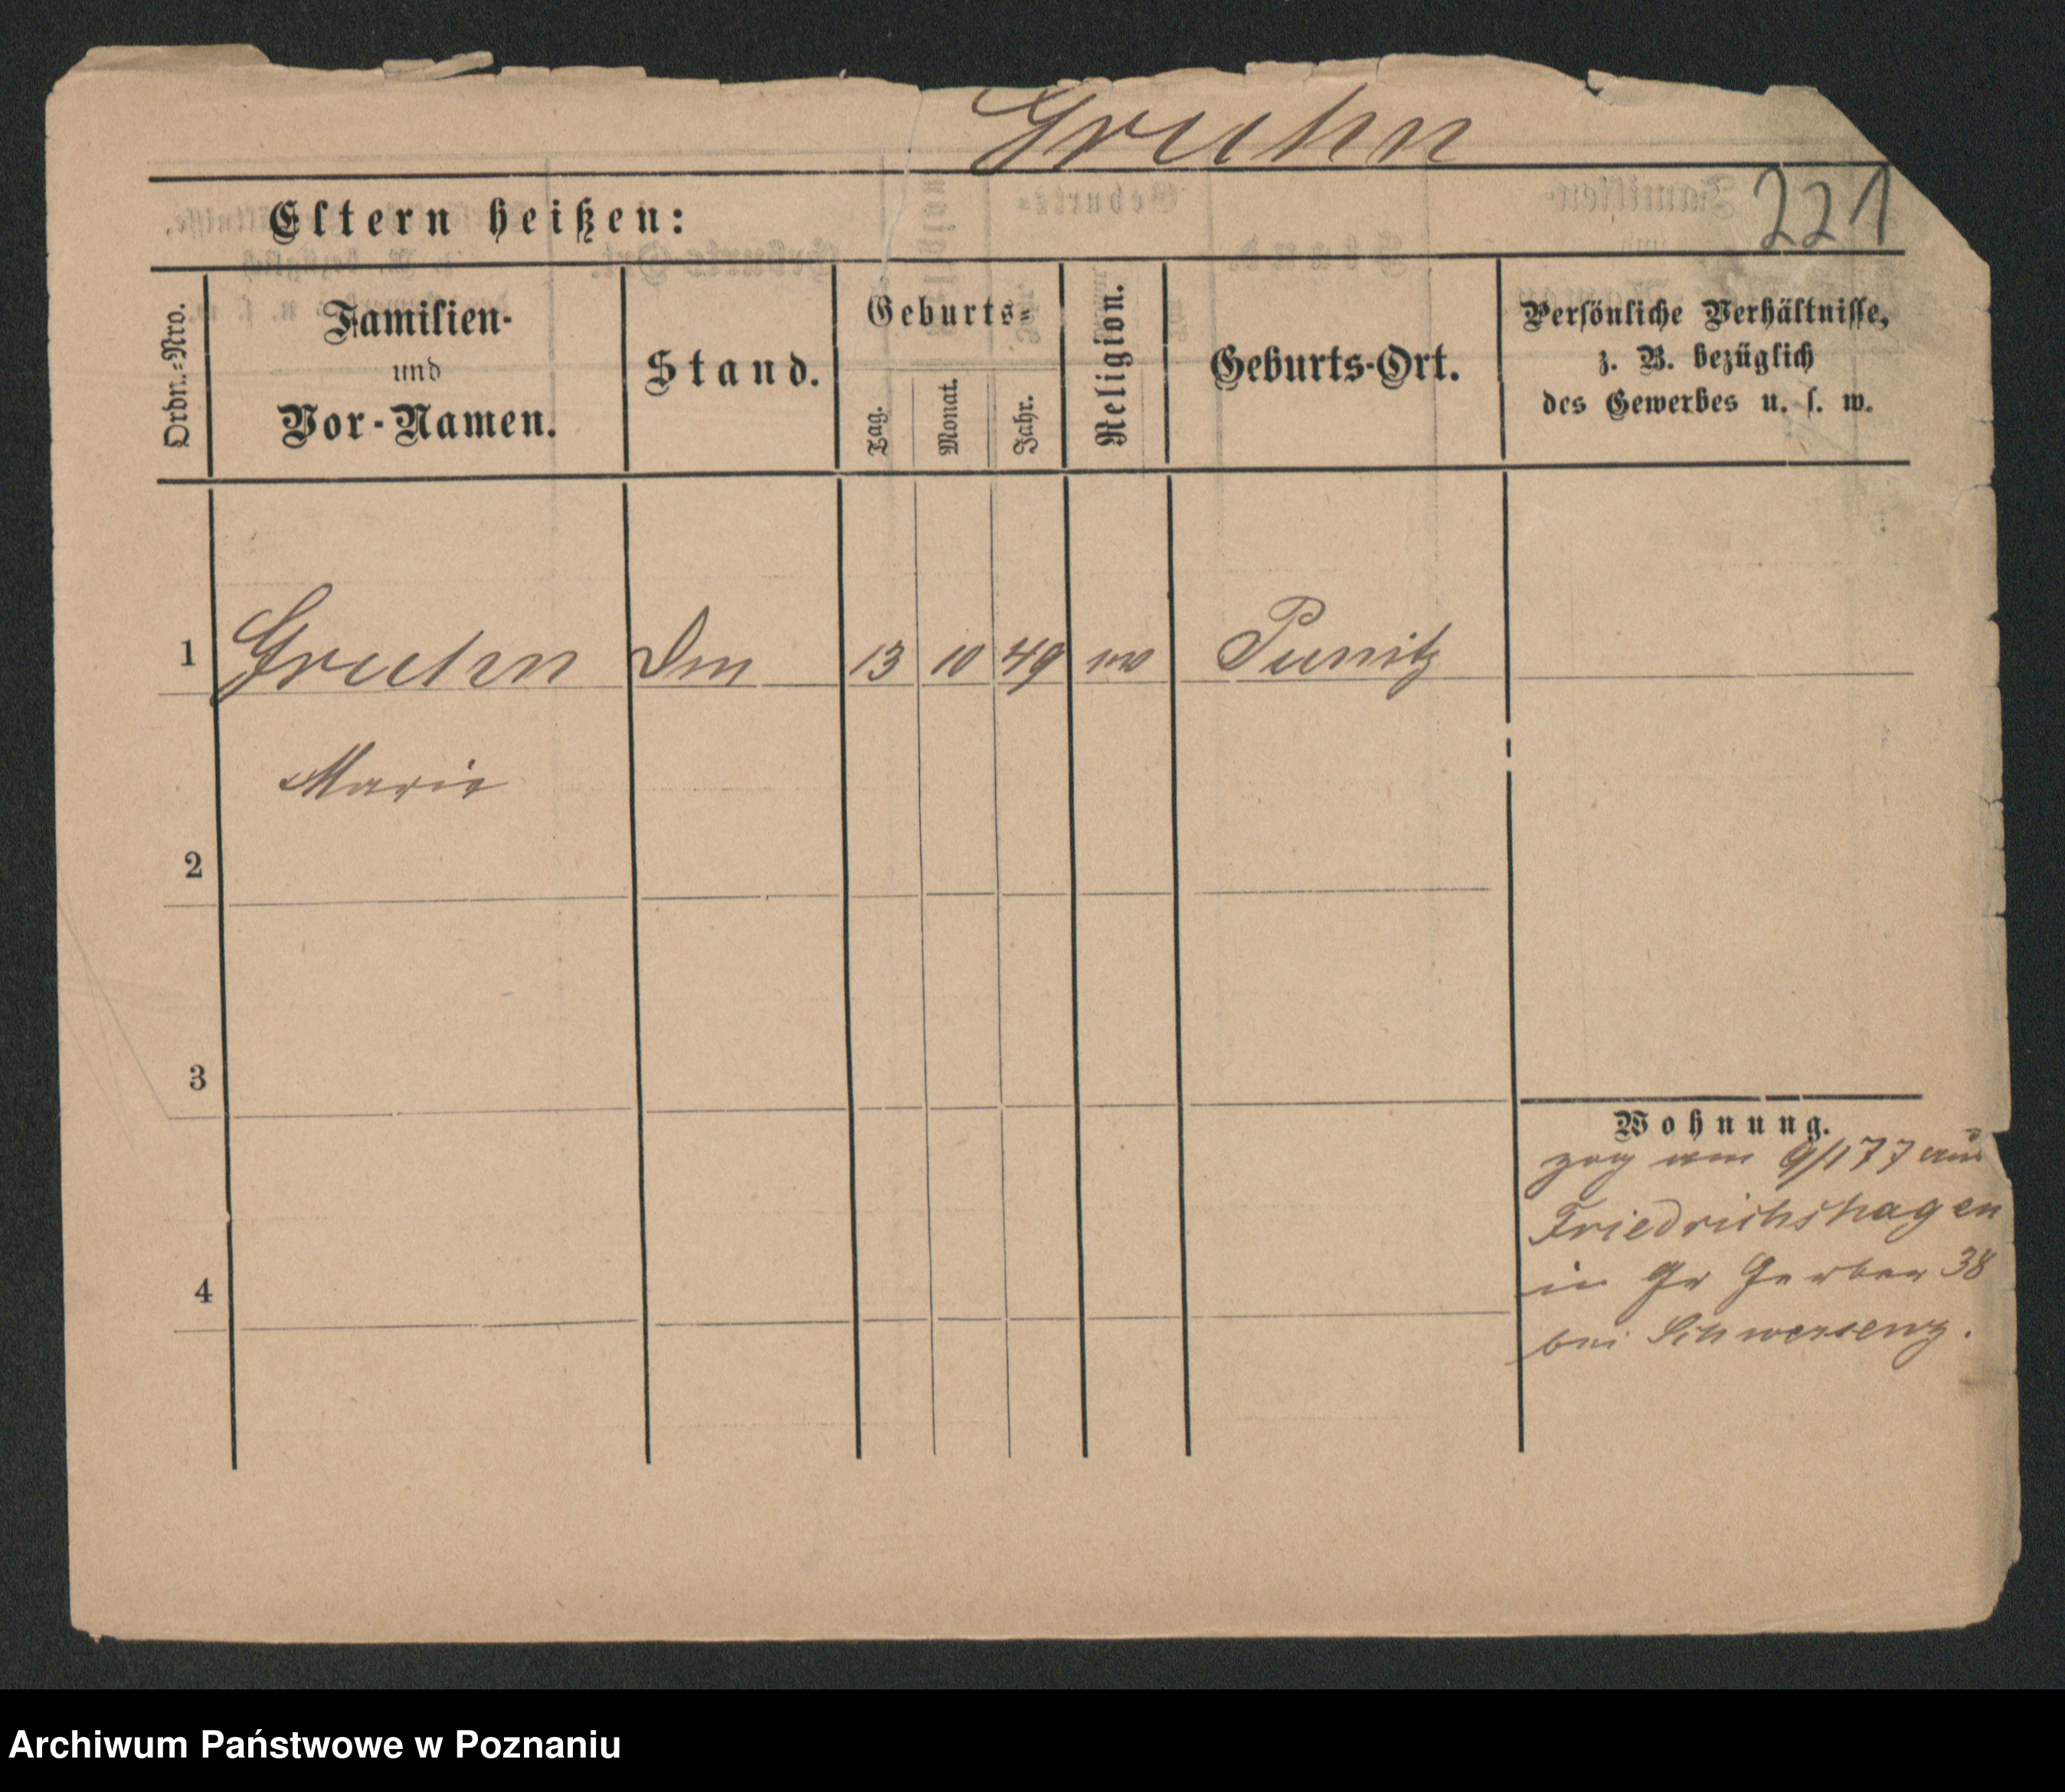 Gruhn
221
Eltern heißen:
Ordn.-Nro.
Familien-
und
Vor-Namen.
Stand.
Geburts-
Tag.
Monat.
Jahr.
Religion.
Geburts-Ort.
Persönliche Verhältnisse,
z. B. bezüglich
des Gewerbes u. s. w.
1 Gruhn 13 10 49 Punitz
Marie
2
3
Wohnung.
zog am 9/1 77 aus
Friedrichshagen
4
in Gr Gerber 38
bei Schwersenz.
Archiwum Państwowe w Poznaniu